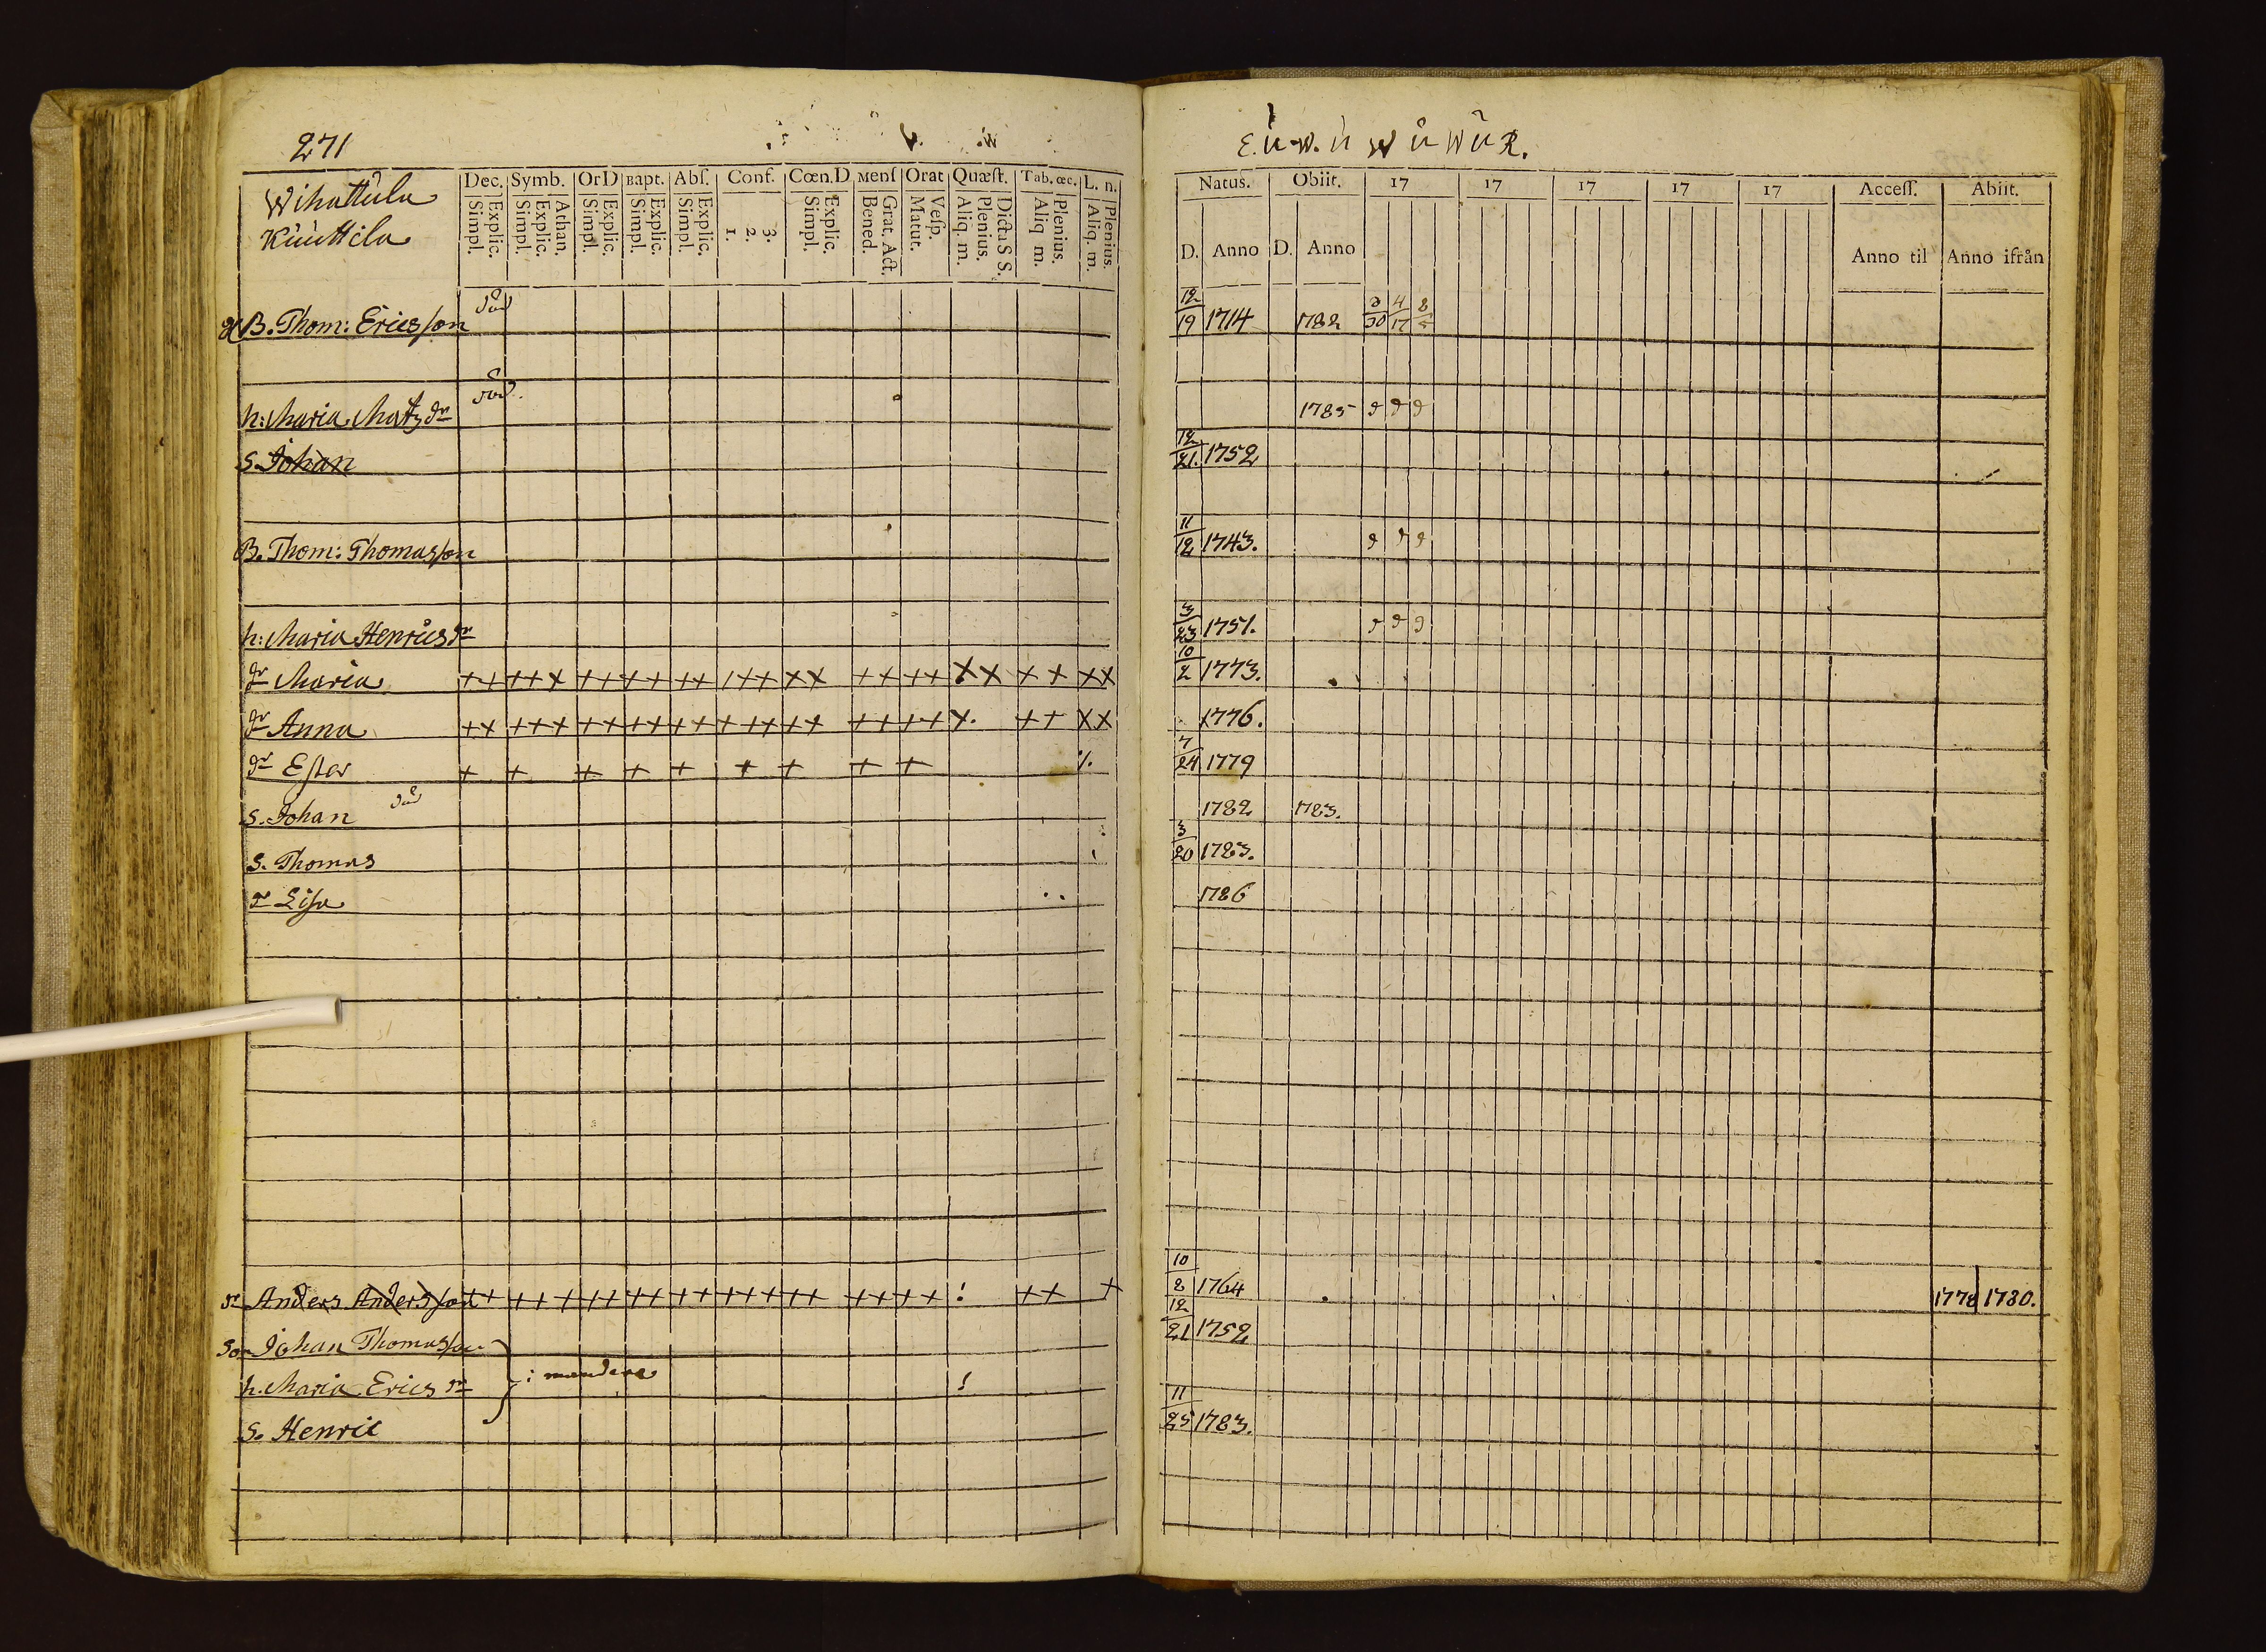 271
Wihattula
Kuuttila
Dec. Symb. OrD Bapt. Abs. Conf. Cœn.D Mens Orat Quæst. Tab. œc. L. n.
Explic. Simpl. Athan. Explic. Simpl. Explic. Simpl. Explic. Simpl. Explic. Simpl. 3. 2. 1. Explic. Simpl. Grat. Act. Bened. Vesp. Matut. Dicta S S. Plenius. Aliq. m. Plenius. Aliq m. Plenius. Aliq. m.
B. Thom: Ericsson död
h: Maria Matzdr död.
S. Johan
B. Thom: Thomasson
h: Maria Henricsdr
dr Maria ++ +++ ++ ++ ++ /++ ×× ++ ++ ×× ×× ××
dr Anna ++ +++ ++ ++ ++ +++ ++ ++ ++ ×. ++ ××
dr Ester + + + + + + + + +
S. Johan död
S. Thomas
dr Lisa
dr Anders Andersson ++ +++ ++ ++ ++ +++ ++ ++ ++ ! ++ +
Son Johan Thomasson
h. Maria Ericsdr !
S. Henric
Natus. Obiit. 17 17 17 17 17 Access. Abiit.
D. Anno D. Anno Anno til Anno ifrån
12/19 1714 1782 3/30 4/17
1785
12/21. 1752
11/12 1743.
3/23 1751.
10/2 1773.
1776.
7/24 1779
1782 1783.
3/20 1783.
1786
10/8 1764 1778 1780.
12/21 1752
11/25 1783.